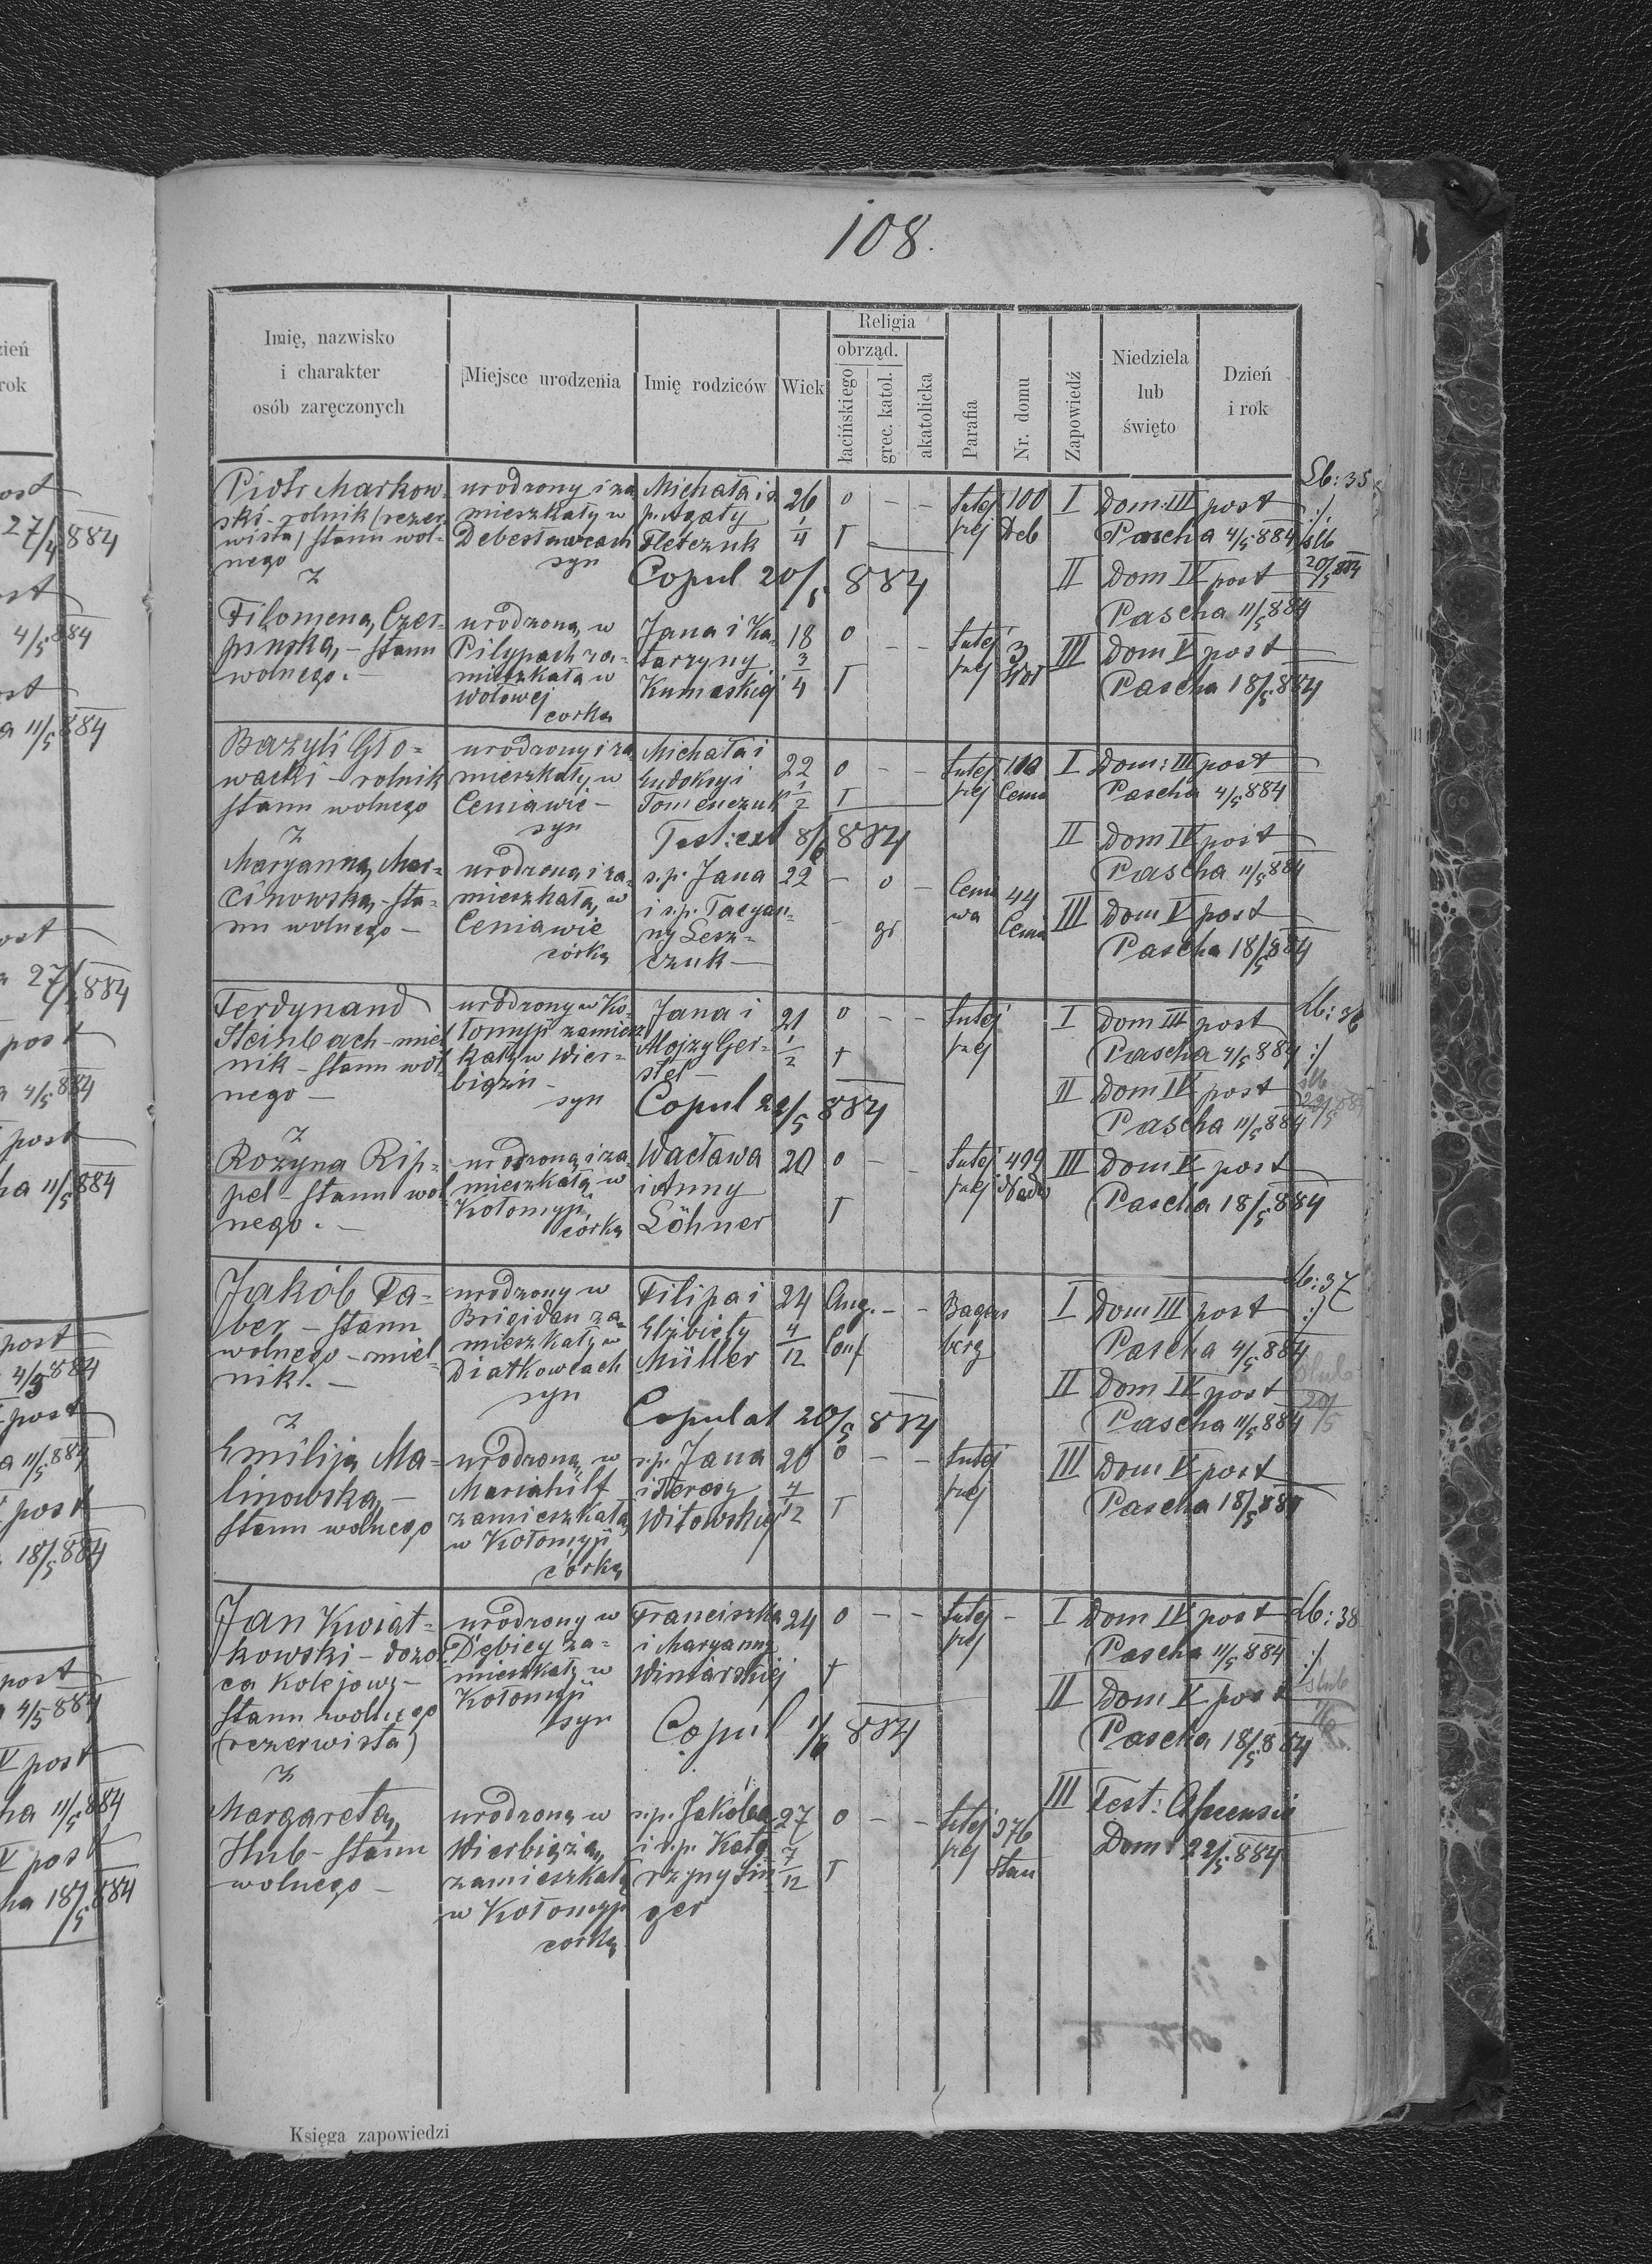 108.
Imię, nazwisko
i charakter
osób zaręczonych
Miejsce urodzenia
Imię rodziców
Wiek
Religia
obrząd.
łacińskiego
grec. katol.
akatolicka
Parafia
Nr. domu
Zapowiedź
Niedziela
lub
święto
Dzień
i rok
Piotr Markow-
ski - rolnik (rezer-
wista) stanu wol-
nego
z
urodzony i za
mieszkały w
Debesławcach
syn
Michała i ś.
p. Agaty
Fletczuk
26
1/4
o
r
tutej
szej
100
Deb
I Dom: III post
Pascha 4/5 884
Lb: 35
:/.
slb
20/5 884
Copul 20/5 884
II Dom IV post
Pascha 11/5 884
Filomena Czer-
pińska, - stanu
wolnego. -
urodzona w
Pilypach za-
mieszkała w
Wołowej
corka
Jana i Ka-
tarzyny
Kumaskiej
18
3/4
o
r
tutej
szej
3
Woł
III Dom V post
Pascha 18/5 884
Bazyli Gło-
wacki - rolnik
stanu wolnego
z
urodzony i za
mieszkały w
Ceniawie -
syn
Michała i
Eudoksyi
Tomenczuk
22
1/2
o
r
tutej
szej
Ceniа
I Dom: III post
Pascha 4/5 884
Test: ext 8/6 884
II Dom IV post
Pascha 11/5 884
Maryanna Mar-
cinowska, - sta-
nu wolnego -
urodzona i za-
mieszkała w
Ceniawie
córka
s.p. Jana
i s.p. Tacyan-
ny Lesz-
czuk -
22
o
gr
Cenia
wa
44
Cenia
III Dom V post
Pascha 18/5 884
Ferdynand
Steinbach - miel
nik - stanu wol-
nego -
z
urodzony w Ko-
łomyji zamiesz
kały w Wier-
biążu -
syn
Jana i
Alojzy Ger-
stel -
21
1/2
o
r
tutej
szej
I Dom III post
Pascha 4/5 884
Lb: 36
:/
Copul 22/5 884
II Dom IV post
Pascha 11/5 884
slb
22/5 884
Rozyna Rip-
pel - stanu wol
nego. -
urodzona i za
mieszkała w
Kołomyji
córka
Wacława
i Anny
Löhner
20
o
r
tutej
szej
409
Nadw
III Dom V post
Pascha 18/5 884
Jakób Fa-
ber - stanu
wolnego - miel-
nik. -
z
urodzony w
Brigidau za-
mieszkały w
Diatkowcach
syn
Filipa i
Elżbiety
Müller
24
4/12
Aug.
Conf
Bagins
berg
I Dom III post
Pascha 4/5 884
Lb: 37
:/
Copulat 20/5 884
II Dom IV post
Pascha 11/5 884
slub
20/5
Emilija Ma-
linowska, -
stanu wolnego
urodzona w
Mariahilf
zamieszkała
w Kołomyji
córka
s.p. Jana
i Teresy
Witowskiej
20
4/12
o
r
tutej
szej
III Dom V post
Pascha 18/5 884
Jan Kwiat-
kowski - dozor
ca kolejowy -
stanu wolnego
(rezerwista)
z
urodzony w
Dębicy za-
mieszkały w
Kołomyji
syn
Franciszka
i Maryanny
Winiarskiej
24
o
r
tutej
szej
I Dom IV post
Pascha 11/5 884
Lb: 38
:/
Copul 1/6 884
II Dom V post
Pascha 18/5 884
slub
1/6
Margareta
Hub - stanu
wolnego -
urodzona w
Wierbiążu,
zamieszkała
w Kołomyji
corka
s.p. Jakóba
i s.p. Kata
rzyny Sin
ger
27
7/12
o
r
tutej
szej
376
Stan
III Fest: Ascensis
Dom: 22/5 884
Księga zapowiedzi